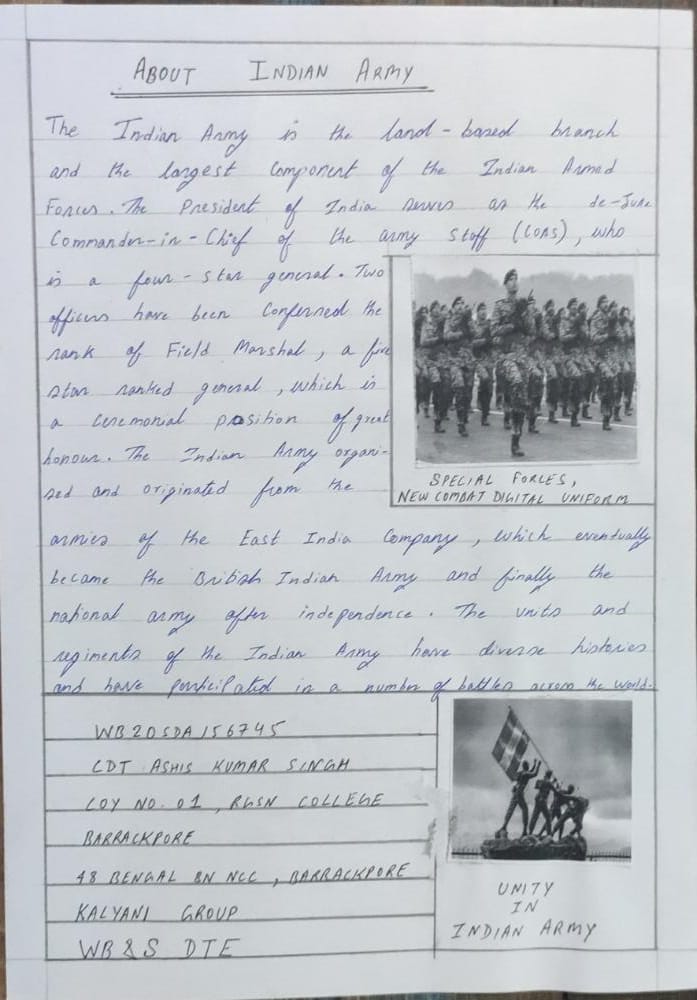 ABOUT INDIAN ARMY
The Indian Army is the land-based branch
and the largest component of the Indian Armed
Forces. The President of India serves as the de-June
Commander-in-Chief of the army staff (COAS), who
is a four-star general. Two
officers have been conferned the
rank of Field Marshal, a five
star ranked general, which is
a ceremonial position of great
honour. The Indian Army organi-
sed and originated from the
SPECIAL FORCES,
NEW COMBAT DIGITAL UNIFORM
armies of the East India Company, which eventually
became the British Indian Army and finally the
national army after independence. The units and
regiments of the Indian Army have diverse histories
and have participated in a number of battles across the world.
WB20SDA156745
CDT ASHIS KUMAR SINGH
COY NO. 01, RGSN COLLEGE
BARRACKPORE
48 BENGAL BN NCC, BARRACKPORE
KALYANI GROUP
WB&S DTE
UNITY
IN
INDIAN ARMY